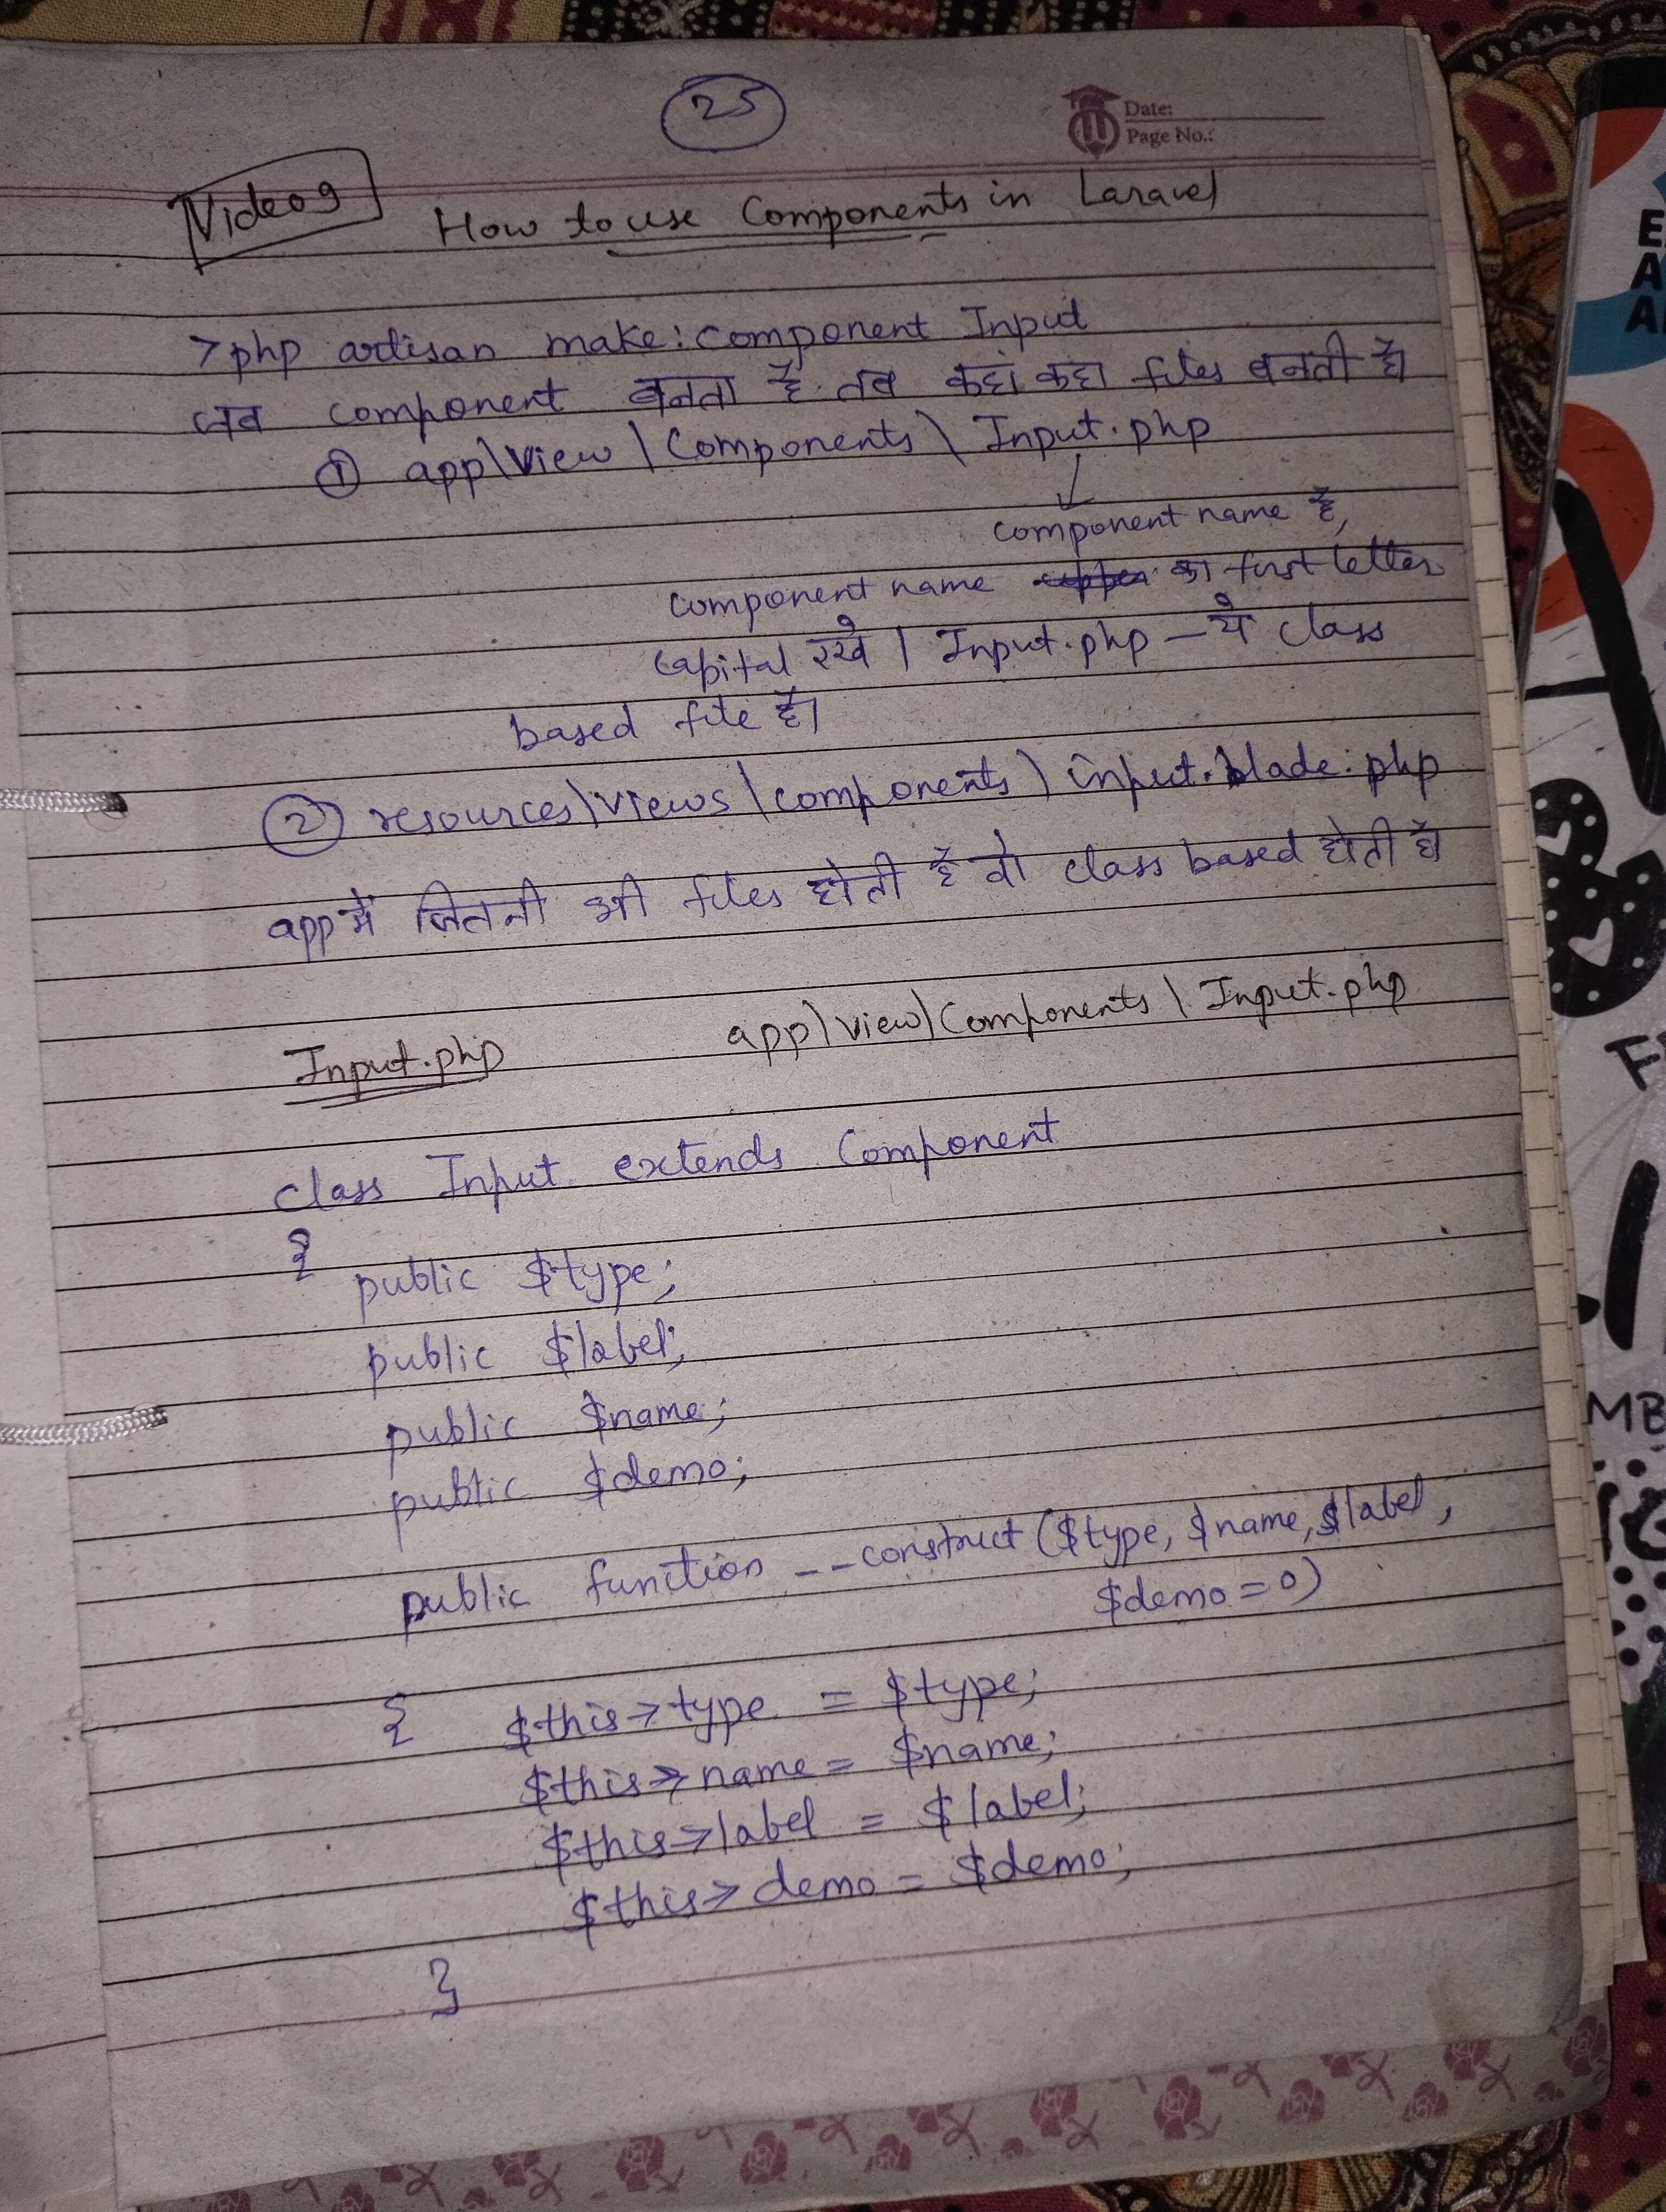 25
Date:
Page No.:
Video 9
How to use Components in Laravel
>php artisan make:component Input
जब component बनता है तब कहां कहा files बनती है।
① app\View\Components\Input.php
component name है,
component name का first letter
capital रखे। Input.php – ये class
based file है।
② resources\views\components\input.blade.php
app में जितनी भी files होती है वो class based होती है।
Input.php app\view\Components\Input.php
class Input extends Component
{
public $type;
public $label;
public $name;
public $demo;
public function __construct ($type, $name, $label,
$demo = 0)
{ $this->type = $type;
$this->name = $name;
$this->label = $label;
$this->demo = $demo;
}
E
A
A
A
&
F
MB